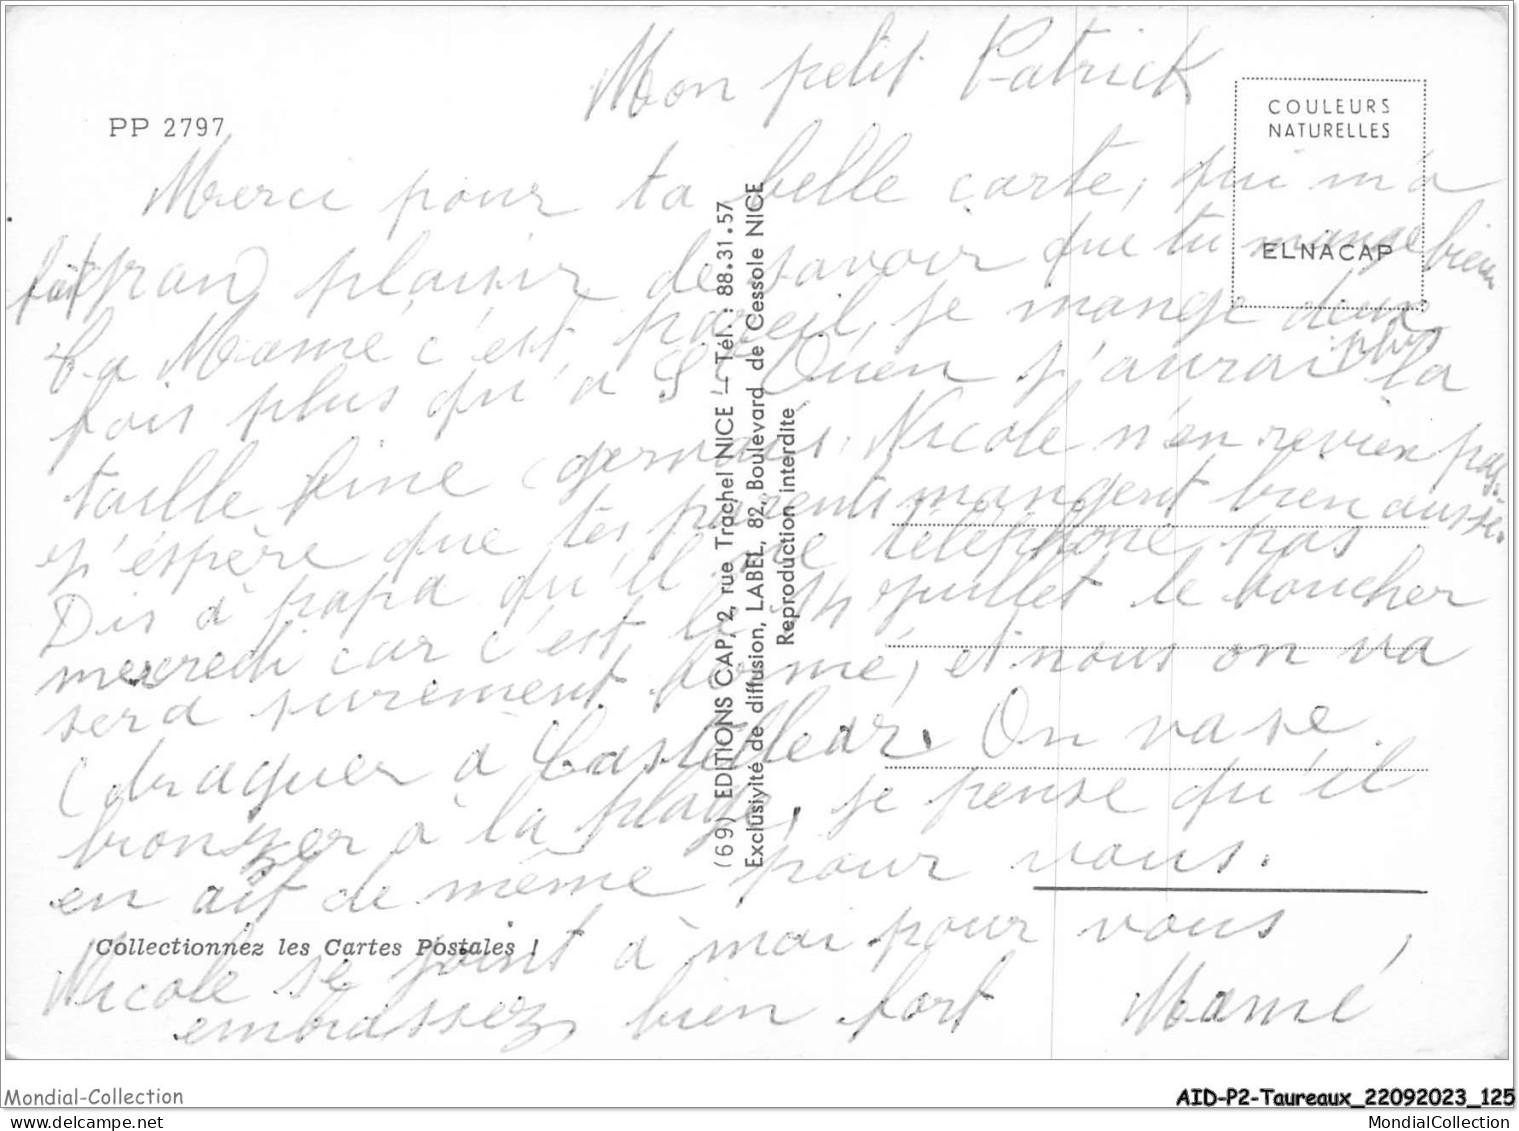 Mon petit Patrick
PP 2797
COULEURS
NATURELLES
ELNACAP
Merci pour ta belle carte, qui m'a
fait gran plaisir de savoir que tu mange bien
La Mamé c'est pareil, je mange deux
fois plus qu'à St Ouen j'aurai plus la
taille fine gervais, Nicole n'en revien pas,
j'éspère que tes parents mangent bien aussi.
Dis à papa qu'il ne téléphone pas
mercredi car c'est le 14 juillet le boucher
sera surement fermé, et nous on va
draguer à Castellar. On va se
bronzer à la plage, je pense qu'il
en ait de même pour vous.
Nicole se joint à moi pour vous
embrassez bien fort Mamé
(69) EDITIONS CAP, 2, rue Trachel NICE - Tél. : 88.31.57
Exclusivité de diffusion, LABEL, 82, Boulevard de Cessole NICE
Reproduction interdite
Collectionnez les Cartes Postales !
Mondial-Collection
AID-P2-Taureaux_22092023_125
MondialCollection